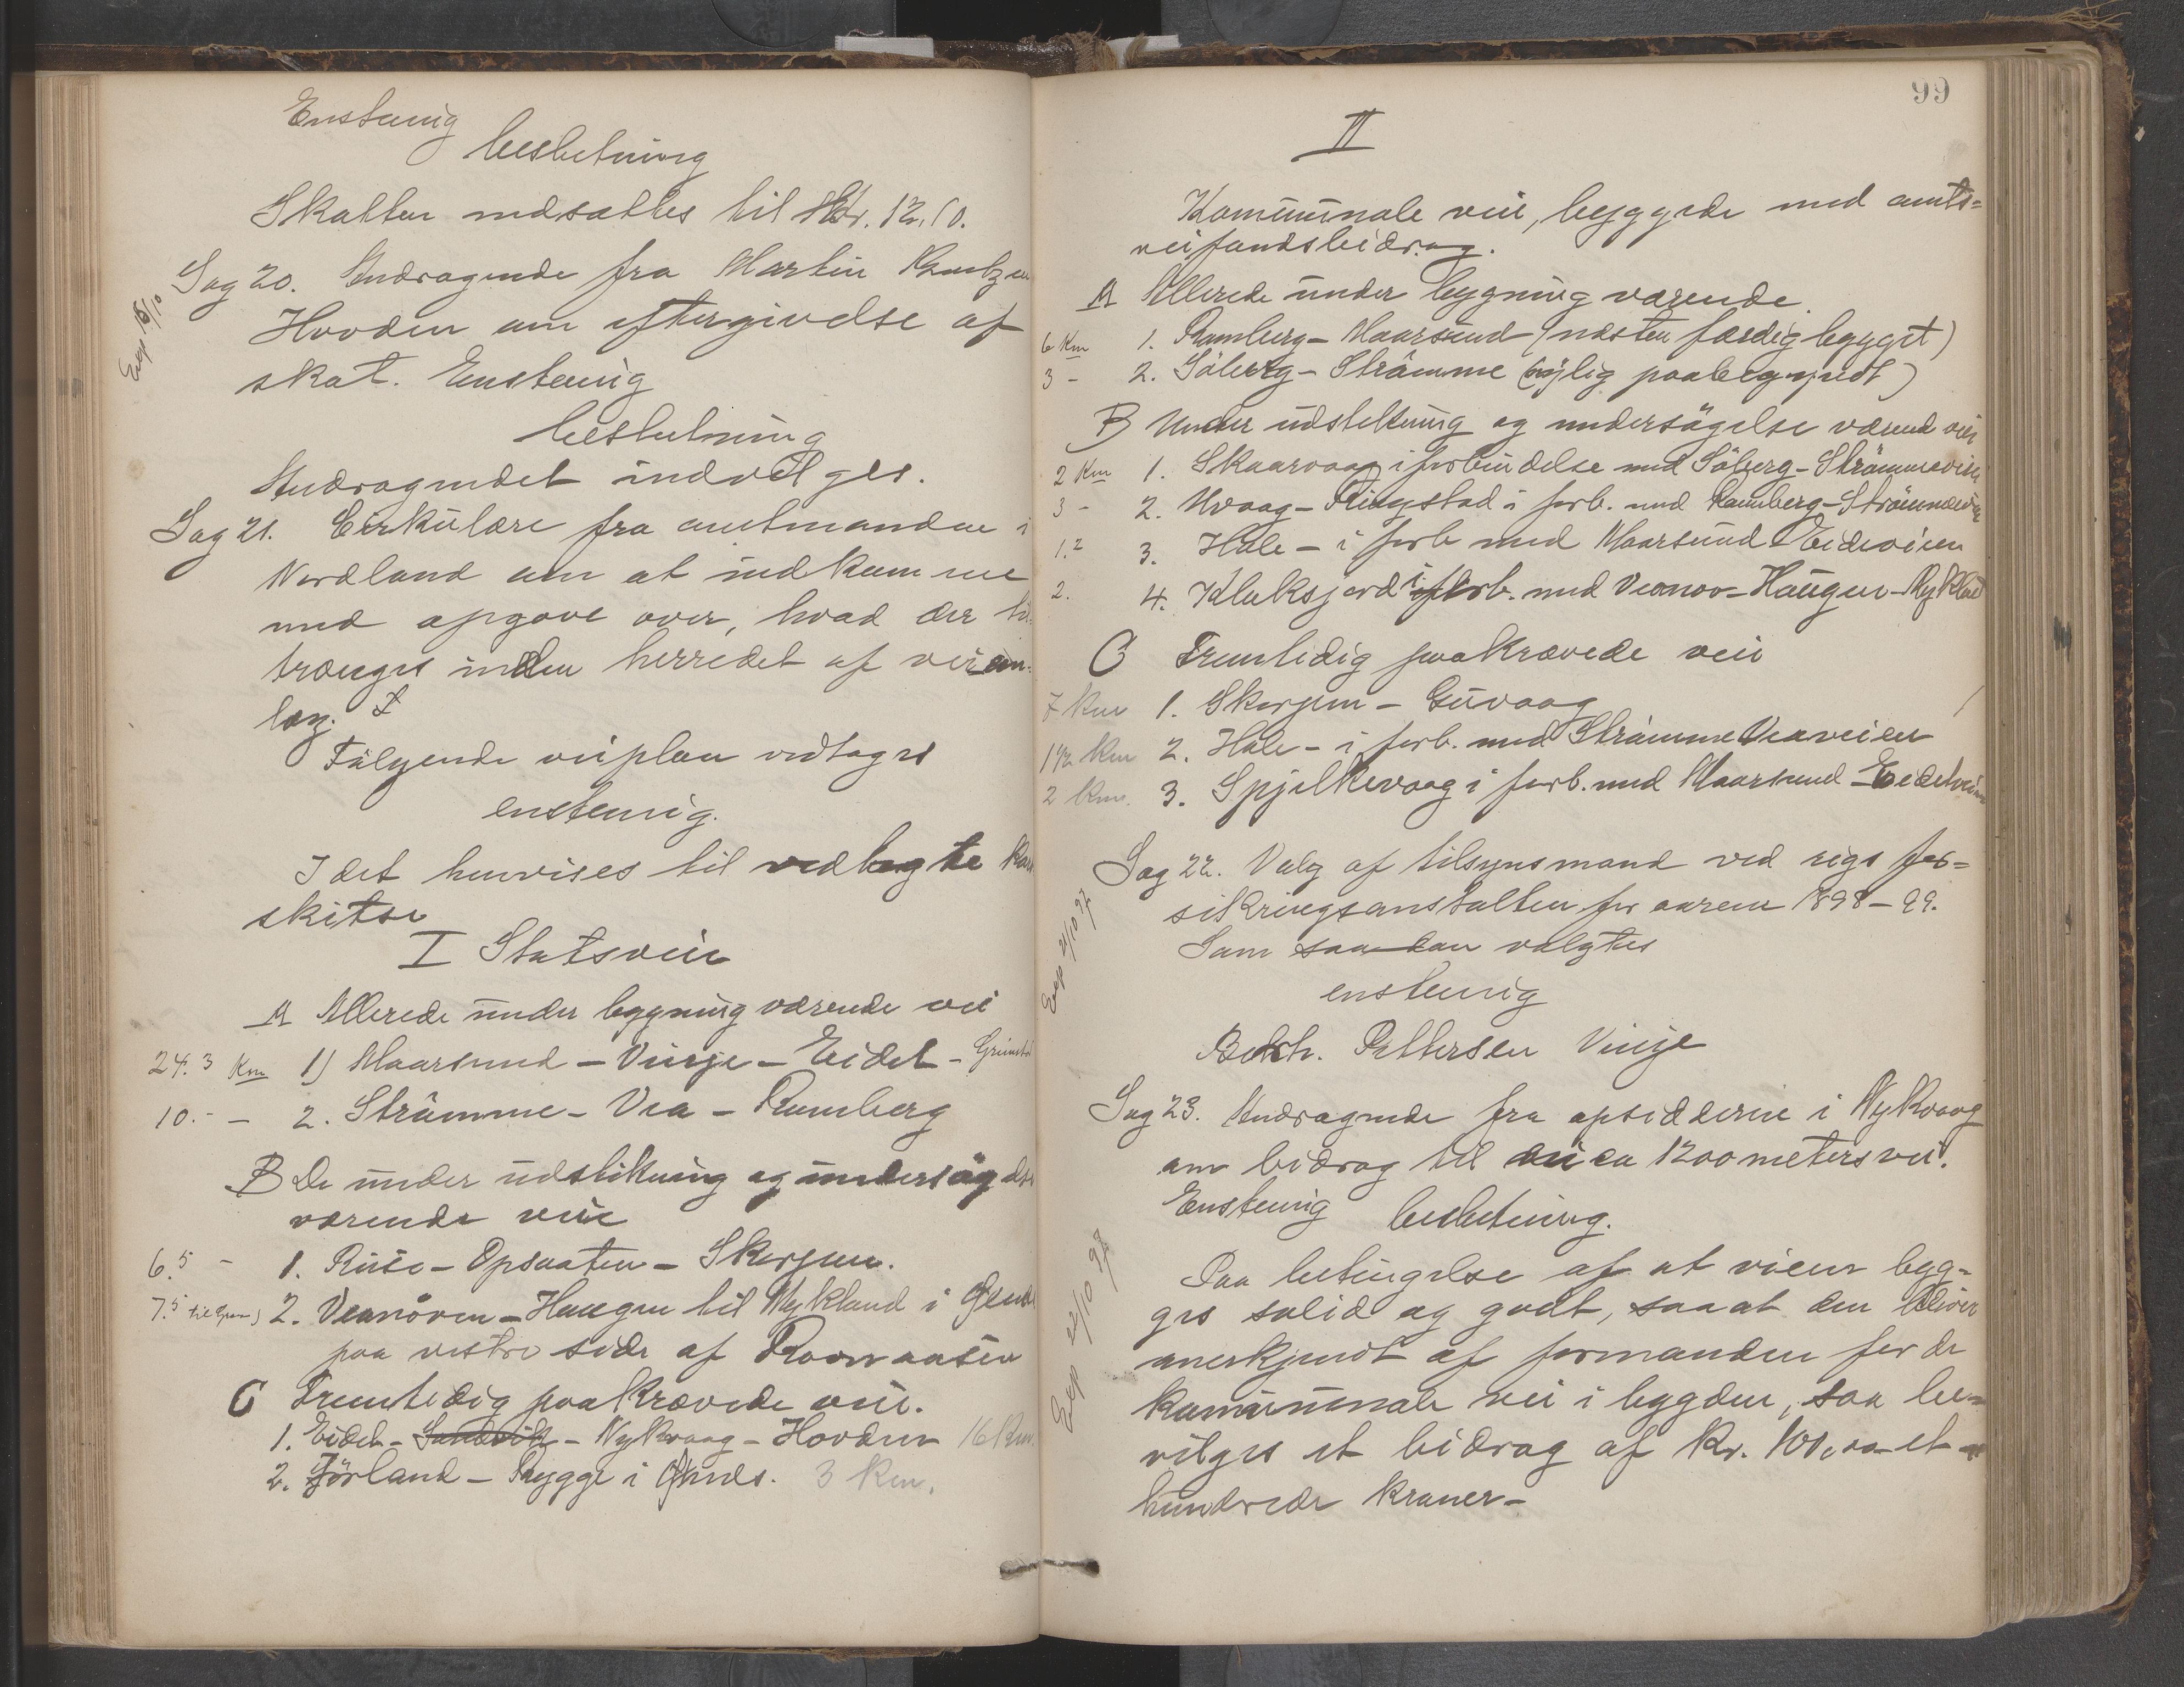 Enstemig
beslutning
Skatten nedsættes til Kr. 12,10.
Exp 15/10
Sag 20. Andragende fra Martin
Hovden om eftergivelse af
skat. Enstemig
beslutning
Andragendet indvilges.
Sag 21. Cirkulære fra amtmanden i
Nordland om at indkomme
med opgave over, hvad der til
trænges inden herredet af veian-
læg.
Følgende veiplan vedtages
enstemig.
I det henvises til vedlagte
skitse
I Statsveie
A Allerede under bygning værende vei
24.3 Km 1) Maarsund - Vinje - Eidet -
10. - - 2. Strömme - Vea - Ramberg
B De under udstikning og undersög else
værende veie
6.5 - 1. Rise - Opsaaten - Skorpen.
7.5 2. Veanören - Haugen til Nykland i
paa vestre side af
C Fremtidig paakrævede veie.
1. Eidet - Sandvik - Nykvaag - Hovden 16 Km.
2. Jörland - Rygge i 3 Km.
99
II
Kommunale veie, byggede med amts-
veifondsbidrag.
A Allerede under bygning værende
6 Km 1. Ramberg - Maarsund (næsten færdig bygget)
3 - 2. Söberg - Strömme (nylig paabegyndt)
B Under udstikning og undersögelse værende veie
2 Km 1. Skaarvaag i forbindelse med Söberg - Strömmeveien
3 - 2. Uvaag - Ringstad i forb. med Ramberg - Strömmeveien
1.2 3. Hole - i forb med Maarsund Eideveien
2. 4. Klaksjord i forb. med Veanor - Haugen - Nykland
C Fremtidig paakrævede veie
7 km 1. Skorpen - Guvaag
1½ km 2. Hole - i forb. med Strömme Veaveien
2 km. 3. Spjelkevaag i forb. med Maarsund - Eidetveien
Sag 22. Valg af tilsynsmand ved rigsfor=
sikringsanstalten for aarene 1898 - 99.
Exp 21/10 97
Som saadan valgtes
enstemig
Pettersen Vinje
Sag 23. Andragende fra opsidderne i Nykvaag
om bidrag til ca 1200 meters vei.
Enstemig beslutning.
Exp 22/10 97
Paa betingelse af at veien byg=
ges solid og godt, saaat den bliver
anerkjendt af formanden for de
kommunale vei i bygden, saa be=
vilges et bidrag af Kr. 100,00 - et -
hundrede kroner -